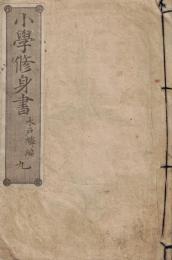 小學修身書
木戸麟編
九